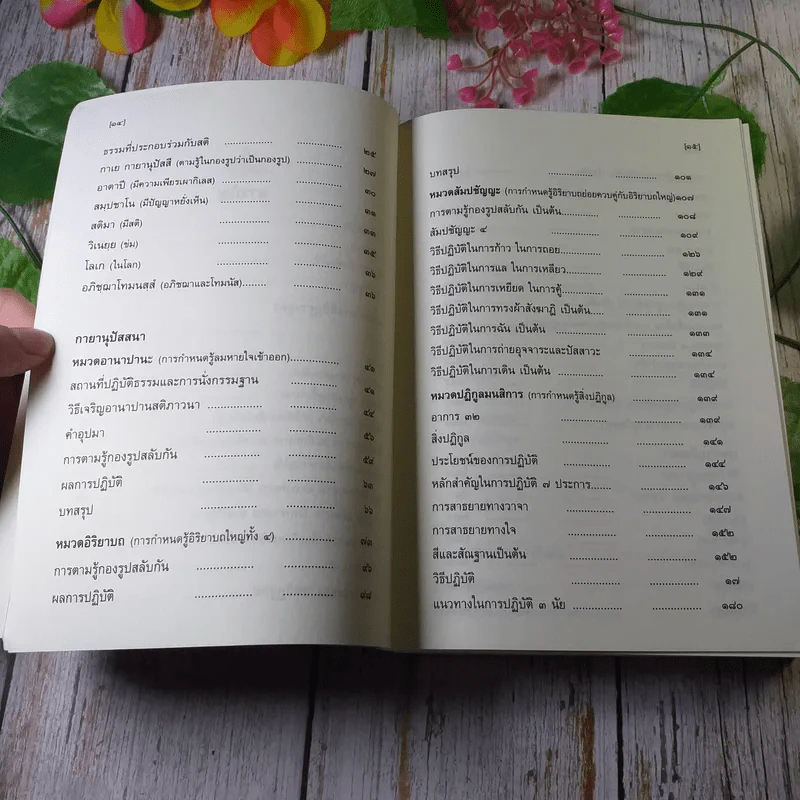 [๑๔]
ธรรมที่ประกอบร่วมกับสติ .................... .................... ๒๕
กาเย กายานุปัสสี (ตามรู้ในกองรูปว่าเป็นกองรูป) .................... ๒๗
อาตาปี (มีความเพียรเผากิเลส) .................... ๓๐
สมฺปชาโน (มีปัญญาหยั่งเห็น) .................... ๓๑
สติมา (มีสติ) .................... .................... ๓๓
วิเนยฺย (ข่ม) .................... .................... ๓๕
โลเก (ในโลก) .................... .................... ๓๖
อภิชฺฌาโทมนสฺสํ (อภิชฌาและโทมนัส)........ .................... ๓๖
กายานุปัสสนา
หมวดอานาปานะ (การกำหนดรู้ลมหายใจเข้าออก).................... ๔๑
สถานที่ปฏิบัติธรรมและการนั่งกรรมฐาน .................... ๔๑
วิธีเจริญอานาปานสติภาวนา .................... .................... ๔๔
คำอุปมา .................... .................... ๕๖
การตามรู้กองรูปสลับกัน .................... .................... ๕๙
ผลการปฏิบัติ .................... .................... ๖๓
บทสรุป .................... .................... ๖๖
หมวดอิริยาบถ (การกำหนดรู้อิริยาบถใหญ่ทั้ง ๔) .................... ๗๓
การตามรู้กองรูปสลับกัน .................... .................... ๙๖
ผลการปฏิบัติ .................... .................... ๙๘
[๑๕]
บทสรุป .................... .................... ๑๐๑
หมวดสัมปชัญญะ (การกำหนดรู้อิริยาบถย่อยควบคู่กับอิริยาบถใหญ่)๑๐๗
การตามรู้กองรูปสลับกัน เป็นต้น............ .................... ๑๐๘
สัมปชัญญะ ๔ .................... .................... ๑๐๙
วิธีปฏิบัติในการก้าว ในการถอย............ .................... ๑๒๖
วิธีปฏิบัติในการแล ในการเหลียว............ .................... ๑๒๙
วิธีปฏิบัติในการเหยียด ในการคู้............ .................... ๑๓๑
วิธีปฏิบัติในการทรงผ้าสังฆาฏิ เป็นต้น............ .................... ๑๓๑
วิธีปฏิบัติในการฉัน เป็นต้น .................... .................... ๑๓๓
วิธีปฏิบัติในการถ่ายอุจจาระและปัสสาวะ .................... ๑๓๔
วิธีปฏิบัติในการเดิน เป็นต้น .................... .................... ๑๓๔
หมวดปฏิกูลมนสิการ (การกำหนดรู้สิ่งปฏิกูล) .................... ๑๓๙
อาการ ๓๒ .................... .................... ๑๓๙
สิ่งปฏิกูล .................... .................... ๑๔๑
ประโยชน์ของการปฏิบัติ .................... .................... ๑๔๔
หลักสำคัญในการปฏิบัติ ๗ ประการ...... .................... ๑๔๖
การสาธยายทางวาจา .................... .................... ๑๔๗
การสาธยายทางใจ .................... .................... ๑๕๒
สีและสัณฐานเป็นต้น .................... .................... ๑๕๒
วิธีปฏิบัติ .................... .................... ๑๗
แนวทางในการปฏิบัติ ๓ นัย .................... .................... ๑๘๐